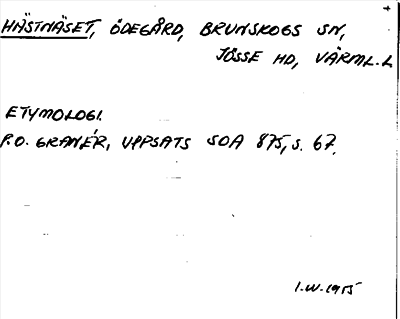 HÄSTNÄSET, ÖDEGÅRD, BRUNSKOGS SN,
JÖSSE HD, VÄRML. L
ETYMOLOGI.
P.O. GRANÉR, UPPSATS SOA 875, S. 67.
I.W. 1955